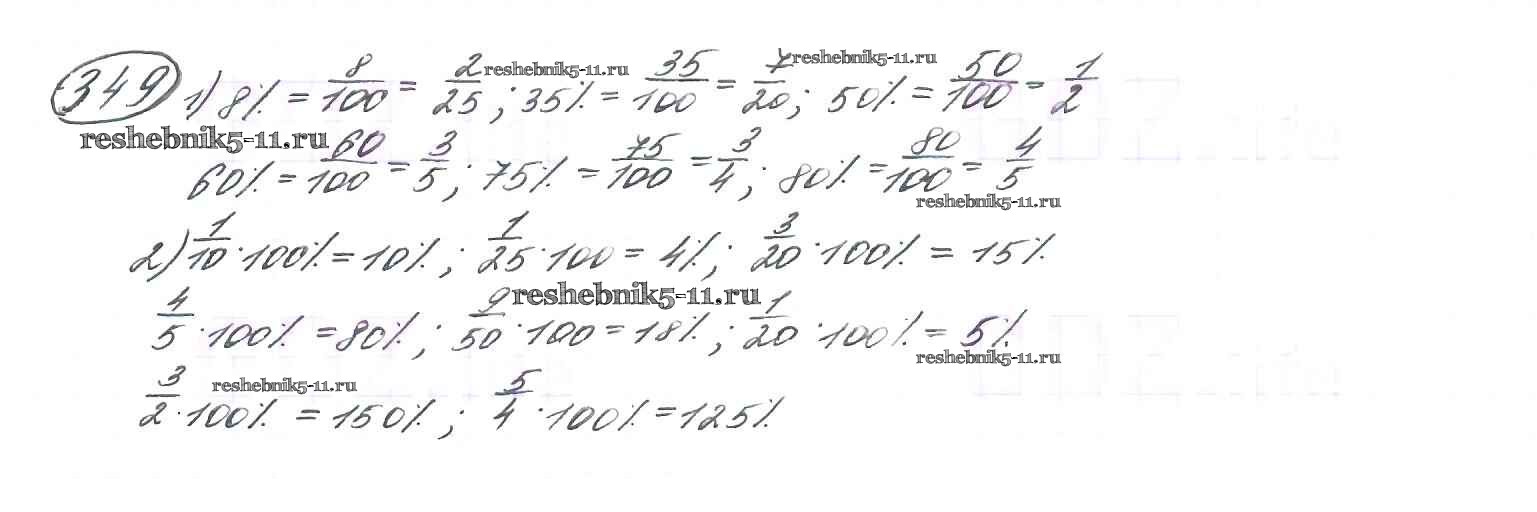 349 1) 8% = 8/100 = 2/25; 35% = 35/100 = 7/20; 50% = 50/100 = 1/2
reshebnik5-11.ru reshebnik5-11.ru
reshebnik5-11.ru
60% = 60/100 = 3/5; 75% = 75/100 = 3/4; 80% = 80/100 = 4/5
reshebnik5-11.ru
2) 1/10 · 100% = 10%; 1/25 · 100 = 4%; 3/20 · 100% = 15%
reshebnik5-11.ru
4/5 · 100% = 80%; 9/50 · 100 = 18%; 1/20 · 100% = 5%
reshebnik5-11.ru
reshebnik5-11.ru
3/2 · 100% = 150%; 5/4 · 100% = 125%